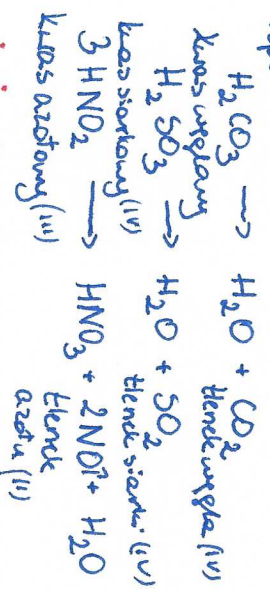 H₂CO₃ → H₂O + CO₂
kwas węglowy tlenek węgla (IV)
H₂SO₃ → H₂O + SO₂
kwas siarkowy (IV) tlenek siarki (IV)
3 HNO₂ → HNO₃ + 2NO↑ + H₂O
kwas azotowy (III) tlenek
azotu (II)